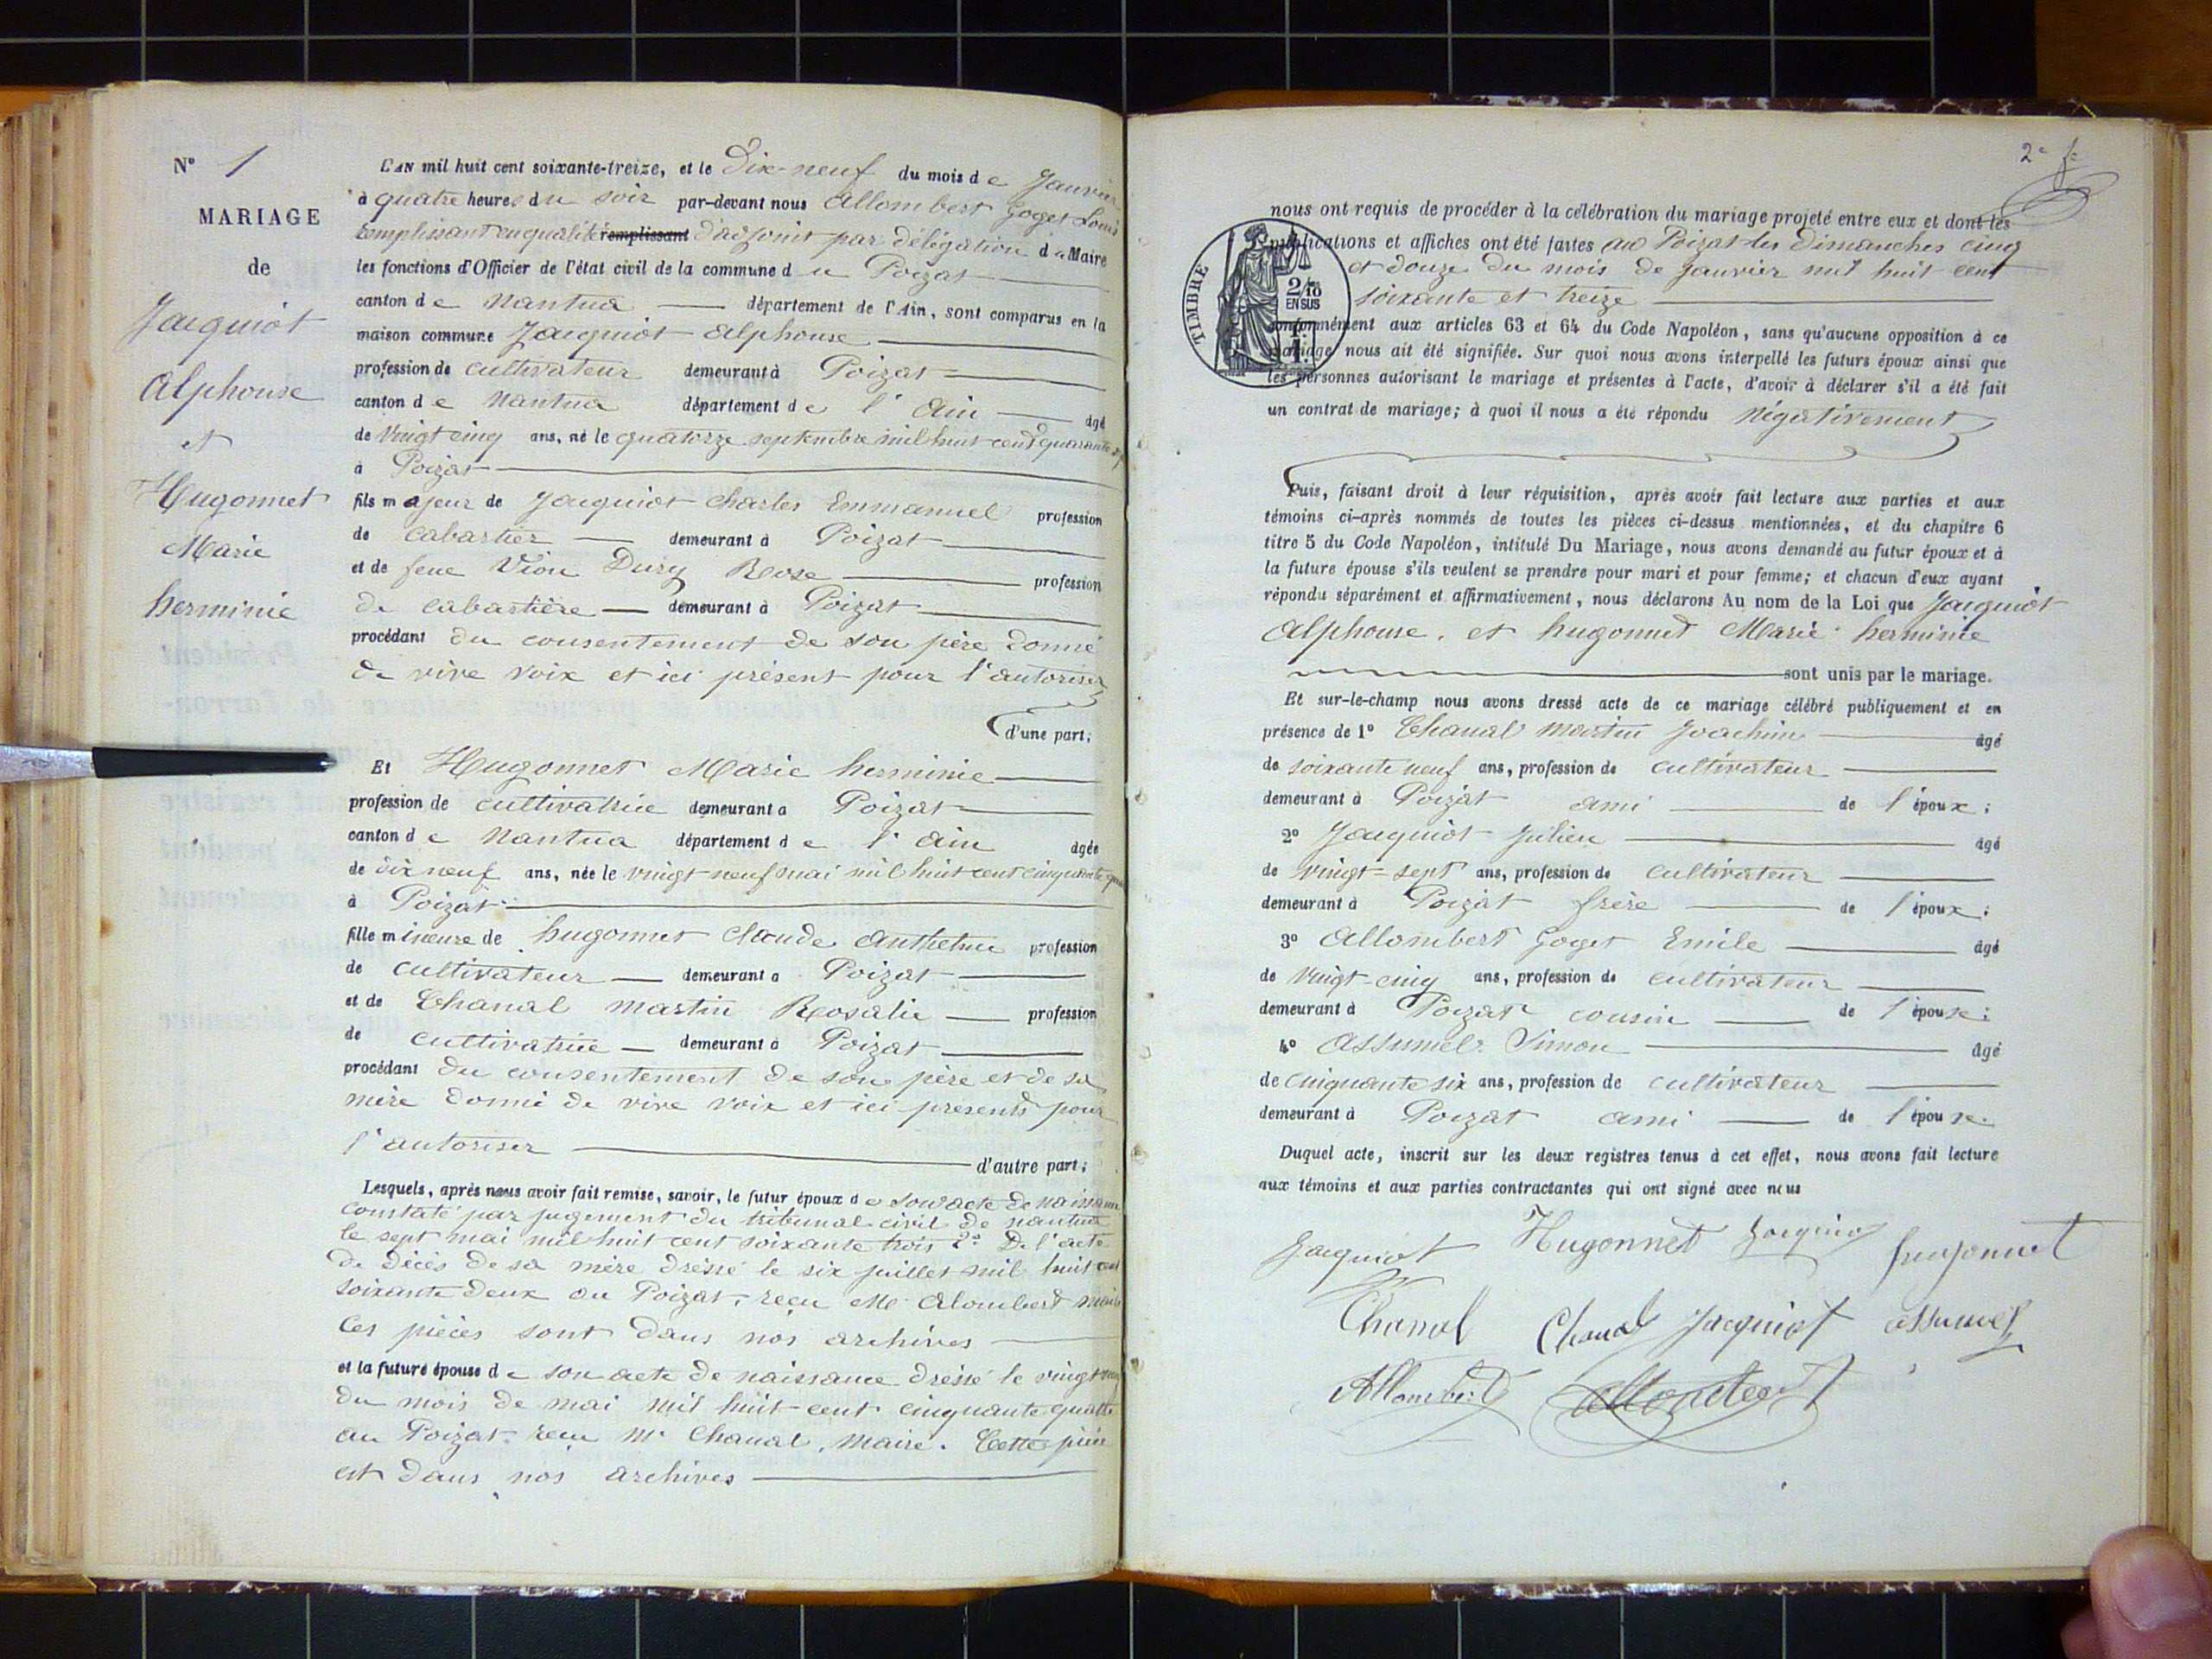 N° 1
MARIAGE
de
Jacquiot
Alphonse
et
Hugonnet
Marie
herminie
L'AN mil huit cent soixante-treize, et le Dix-neuf du mois de Janvier
à quatre heures du soir par-devant nous Allombert Goget Louis
remplissant en qualité remplissant d'adjoint par délégation de Maire
les fonctions d'Officier de l'état civil de la commune du Poizat
canton de Nantua département de l'Ain, sont comparus en la
maison commune Jacquiot Alphonse
profession de cultivateur demeurant à Poizat
canton de Nantua département de l'Ain âgé
de Vingt cinq ans, né le quatorze septembre mil huit cent quarante sept
à Poizat
fils majeur de Jacquiot Charles Emmanuel profession
de cabartier demeurant à Poizat
et de feue Vion Dury Rose profession
de cabartière demeurant à Poizat
procédant du consentement de son père donné
de vive voix et ici présent pour l'autoriser
d'une part;
Et Hugonnet Marie herminie
profession de cultivatrice demeurant à Poizat
canton de Nantua département de l'Ain âgée
de dix neuf ans, née le vingt-neuf mai mil huit cent cinquante
à Poizat
fille mineure de hugonnet Claude Anthelme profession
de cultivateur demeurant à Poizat
et de Chanal Martin Rosalie profession
de cultivatrice demeurant à Poizat
procédant du consentement de son père et de sa
mère donné de vive voix et ici présents pour
l'autoriser
d'autre part;
Lesquels, après nous avoir fait remise, savoir, le futur époux de son acte de naissance
constaté par jugement du tribunal civil de nantua
le sept mai mil huit cent soixante trois 2° De l'acte
de décès de sa mère dressé le six juillet mil huit cent
soixante deux au Poizat, reçu Mr Alombert maire
Ces pièces sont dans nos archives
et la future épouse de son acte de naissance dressé le vingt neuf
du mois de mai mil huit cent cinquante quatre
au Poizat reçu Mr Chanal, Maire. Cette pièce
est dans nos archives
2e f
nous ont requis de procéder à la célébration du mariage projeté entre eux et dont les
publications et affiches ont été faites au Poizat les Dimanches cinq
et douze du mois de janvier mil huit cent
soixante et treize
TIMBRE
2/10
EN SUS
conformément aux articles 63 et 64 du Code Napoléon, sans qu'aucune opposition à ce
mariage nous ait été signifiée. Sur quoi nous avons interpellé les futurs époux ainsi que
les personnes autorisant le mariage et présentes à l'acte, d'avoir à déclarer s'il a été fait
un contrat de mariage; à quoi il nous a été répondu négativement
Puis, faisant droit à leur réquisition, après avoir fait lecture aux parties et aux
témoins ci-après nommés de toutes les pièces ci-dessus mentionnées, et du chapitre 6
titre 5 du Code Napoléon, intitulé Du Mariage, nous avons demandé au futur époux et à
la future épouse s'ils veulent se prendre pour mari et pour femme; et chacun d'eux ayant
répondu séparément et affirmativement, nous déclarons Au nom de la Loi que Jacquiot
Alphonse. et hugonnet Marie herminie
sont unis par le mariage.
Et sur-le-champ nous avons dressé acte de ce mariage célébré publiquement et en
présence de 1° Chanal Martin Joachim âgé
de soixante neuf ans, profession de cultivateur
demeurant à Poizat ami de l'époux;
2° Jacquiot Julien âgé
de vingt-sept ans, profession de cultivateur
demeurant à Poizat frère de l'époux;
3° Allombert Goget Emile âgé
de Vingt-cinq ans, profession de cultivateur
demeurant à Poizat cousin de l'épouse;
4° Assumel Simon âgé
de cinquante six ans, profession de cultivateur
demeurant à Poizat ami de l'épouse.
Duquel acte, inscrit sur les deux registres tenus à cet effet, nous avons fait lecture
aux témoins et aux parties contractantes qui ont signé avec nous
Jacquiot Hugonnet Jacquiot hugonnet
Chanal Chanal Jacquiot assumel
Allombert Allombert